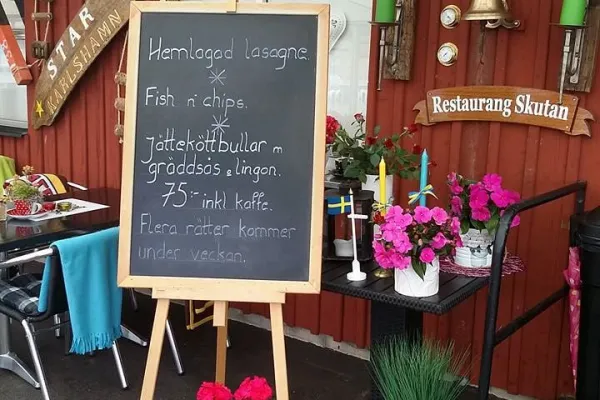 STAR
KARLSHAMN
Hemlagad lasagne.
Fish n' chips.
Jätteköttbullar m
gräddsås & lingon.
75:- inkl kaffe.
Flera rätter kommer
under veckan.
Restaurang Skutan